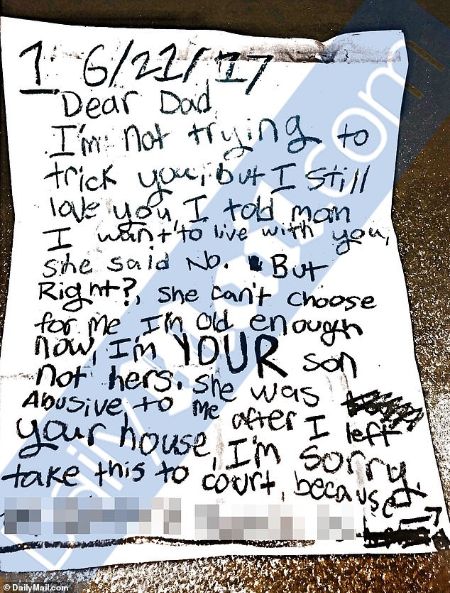 1 6/21/17
Dear Dad
I'm not trying to
trick you, but I still
love you, I told mam
I want to live with you,
she said No. But
Right?, she can't choose
for me I'm old enough
now, I'm YOUR son
not hers. she was
Abusive to me after I left
your house, I'm sorry,
take this to court, because
DailyMail.com
© DailyMail.com